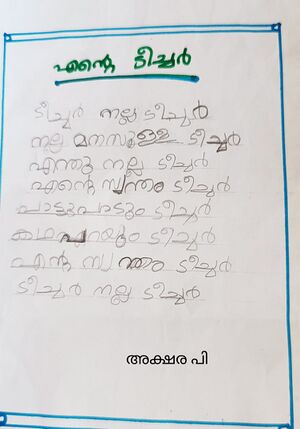 എന്റെ ടീച്ചർ
ടീച്ചർ നല്ല ടീച്ചർ
നല്ല മനസുള്ള ടീച്ചർ
എന്തു നല്ല ടീച്ചർ
എന്റെ സ്വന്തം ടീച്ചർ
പാട്ടുപാടും ടീച്ചർ
കഥ പറയും ടീച്ചർ
എന്റെ സ്വന്തം ടീച്ചർ
ടീച്ചർ നല്ല ടീച്ചർ
അക്ഷര പി